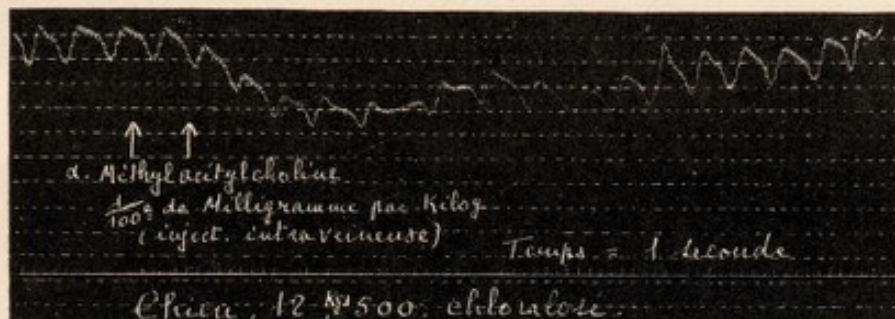 α. Méthylacétylcholine
1/100e de Milligramme par Kilog
(inject. intraveineuse)
Temps = 1 seconde
Chien, 12 Kgs 500. chloralose.